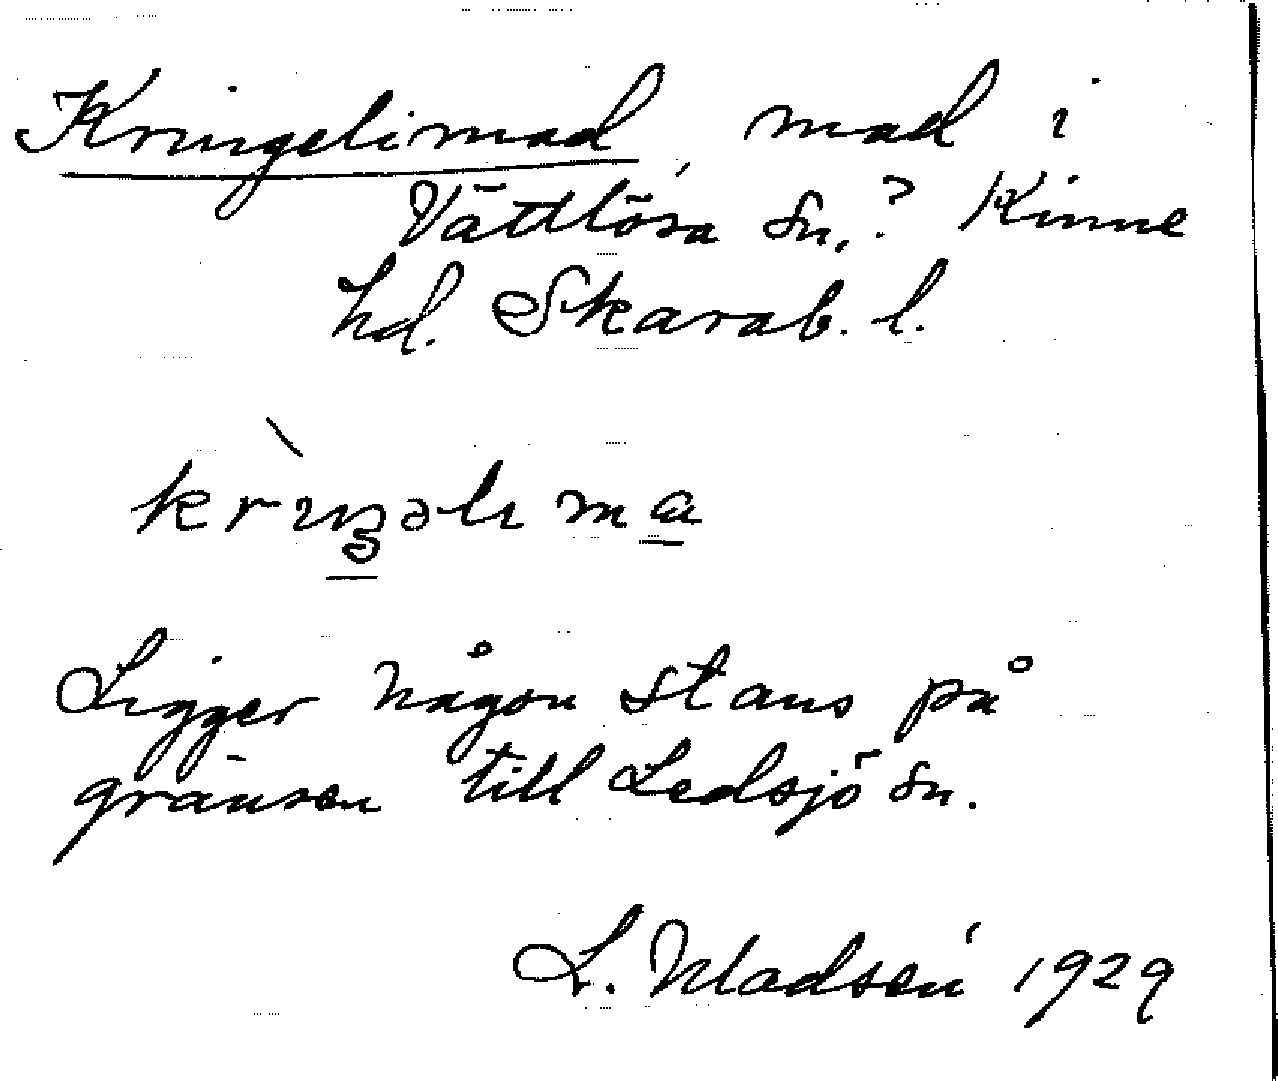 Kringelimad, mad i
Vättlösa sn.? Kinne
hd. Skarab. l.
krıŋəlı ma
Ligger någon stans på
gränsen till Ledsjö sn.
L. Madsén 1929